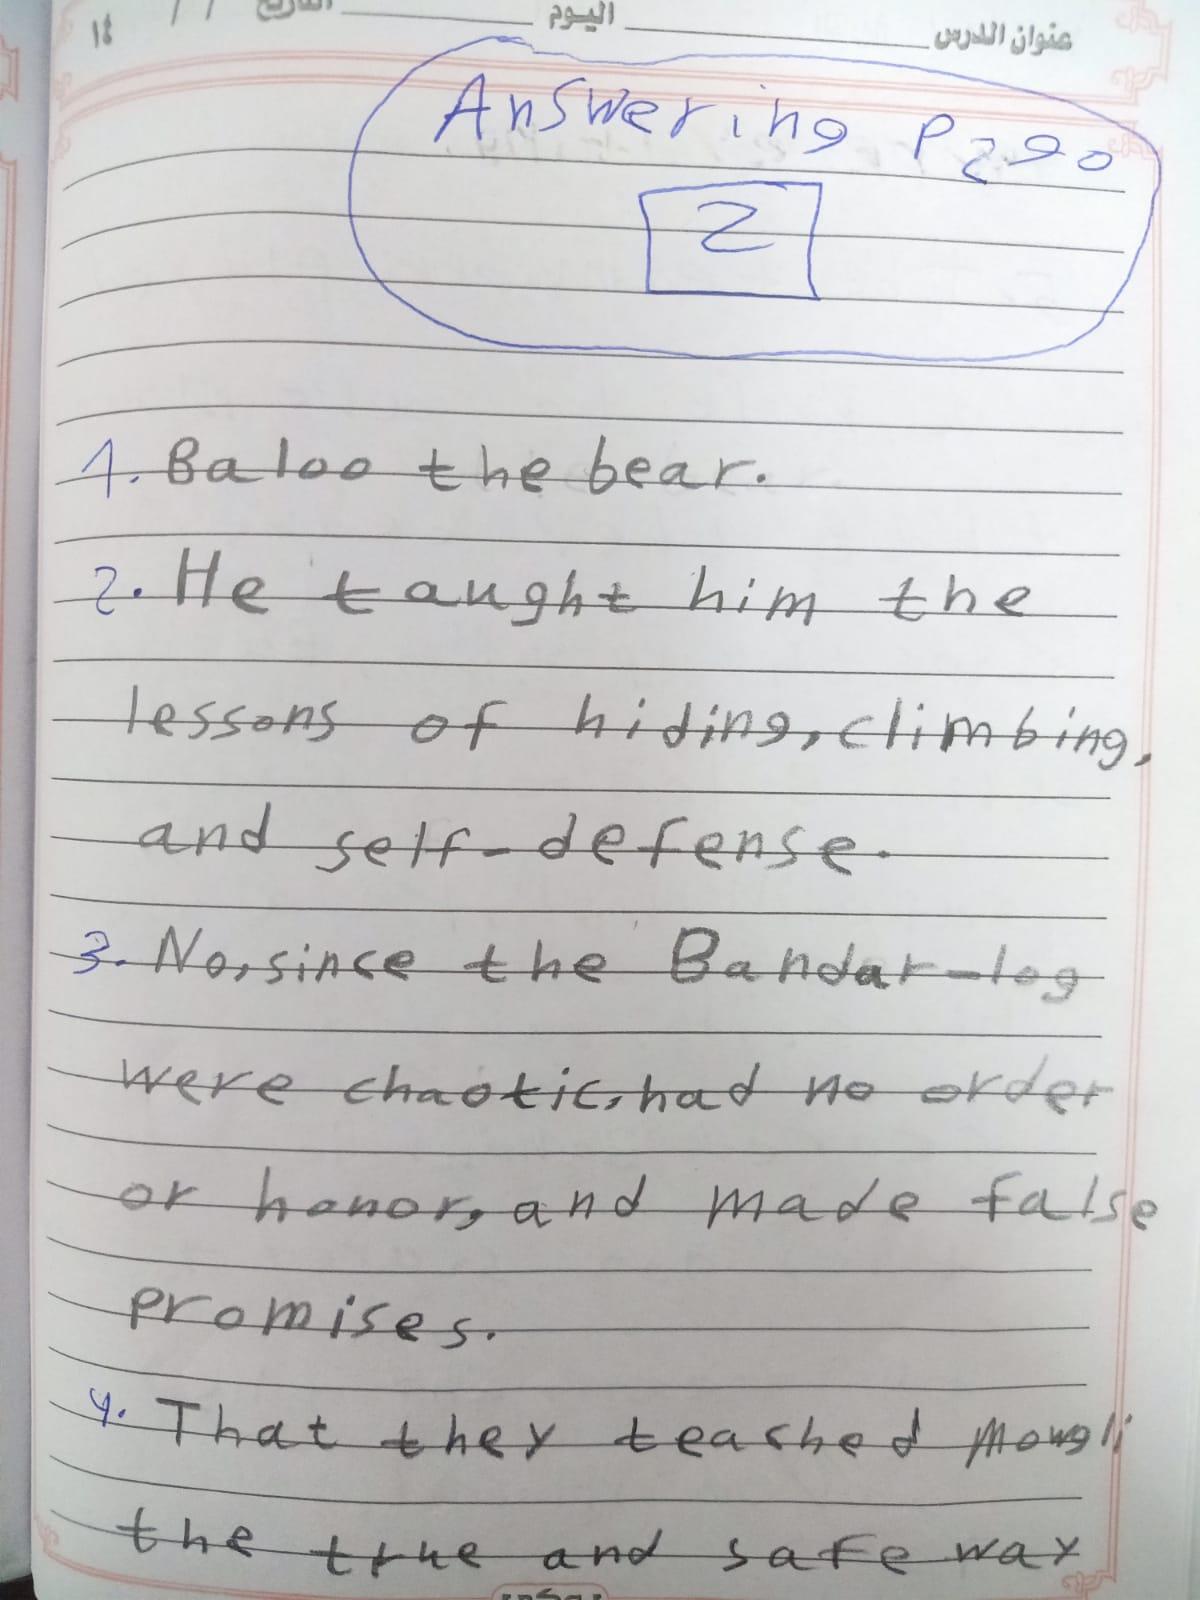 عنوان الدرس اليوم التاريخ / / ١٤
Answering P290
2
1. Baloo the bear.
2. He taught him the
lessons of hiding, climbing,
and self-defense.
3. No, since the Bandar-log
were chaotic, had no order
or honor, and made false
promises.
4. That they teached Mowgli
the true and safe way